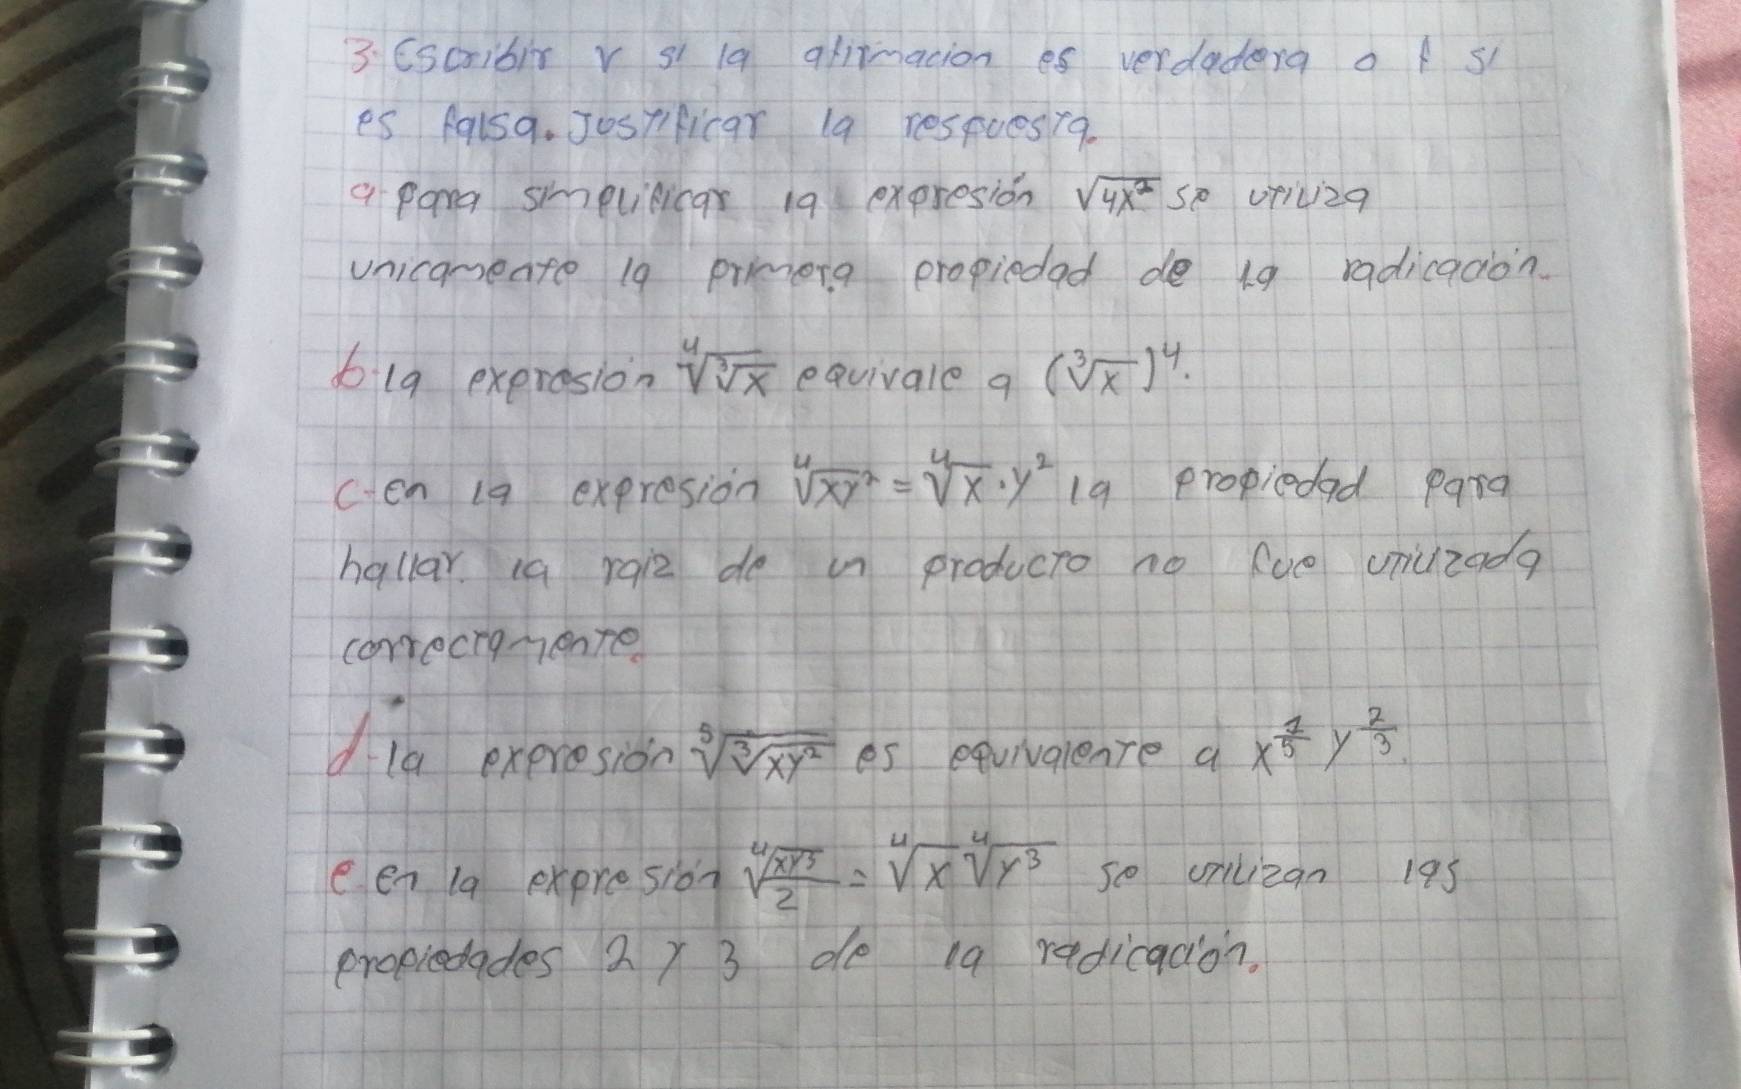 3. Escribir v si la afirmacion es verdadera o f si
es falsa. Justificar la respuesta.
a. para simplificar la expresión √4x² se utiliza
unicamente la primera propiedad de la radicación.
b. la expresión ⁴√³√x equivale a (³√x)⁴.
c. en la expresión ⁴√xy² = ⁴√x · y² la propiedad para
hallar la raiz de un producto no fue utilizada
correctamente.
d. la expresión ⁵√³√xy² es equivalente a x^1/5 y^2/3.
e. en la expresión ⁴√xy³/2 = ⁴√x ⁴√y³ se utilizan las
propiedades 2 y 3 de la radicación.